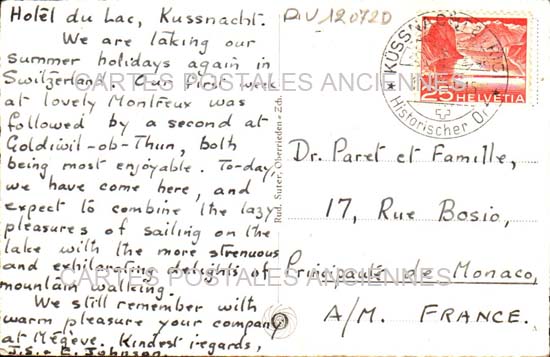 Hotel du Lac, Kussnacht.
We are taking our
summer holidays again in
Switzerland. Our first week
at lovely Montreux was
followed by a second at
Goldiwil-ob-Thun, both
being most enjoyable. To-day,
we have come here, and
expect to combine the lazy
pleasures of sailing on the
lake with the more strenuous
and exhilarating delights of
mountain walking.
We still remember with
warm pleasure your company
at Megève. Kindest regards,
J.S. & E. Johnson.
Rud. Suter, Oberrieden - Zch.
KÜSSNACHT
Historischer Or
25 HELVETIA
Dr. Paret et Famille,
17, Rue Bosio,
Principauté de Monaco,
A/M. FRANCE.
CARTES POSTALES ANCIENNES
CARTES POSTALES ANCIENNES